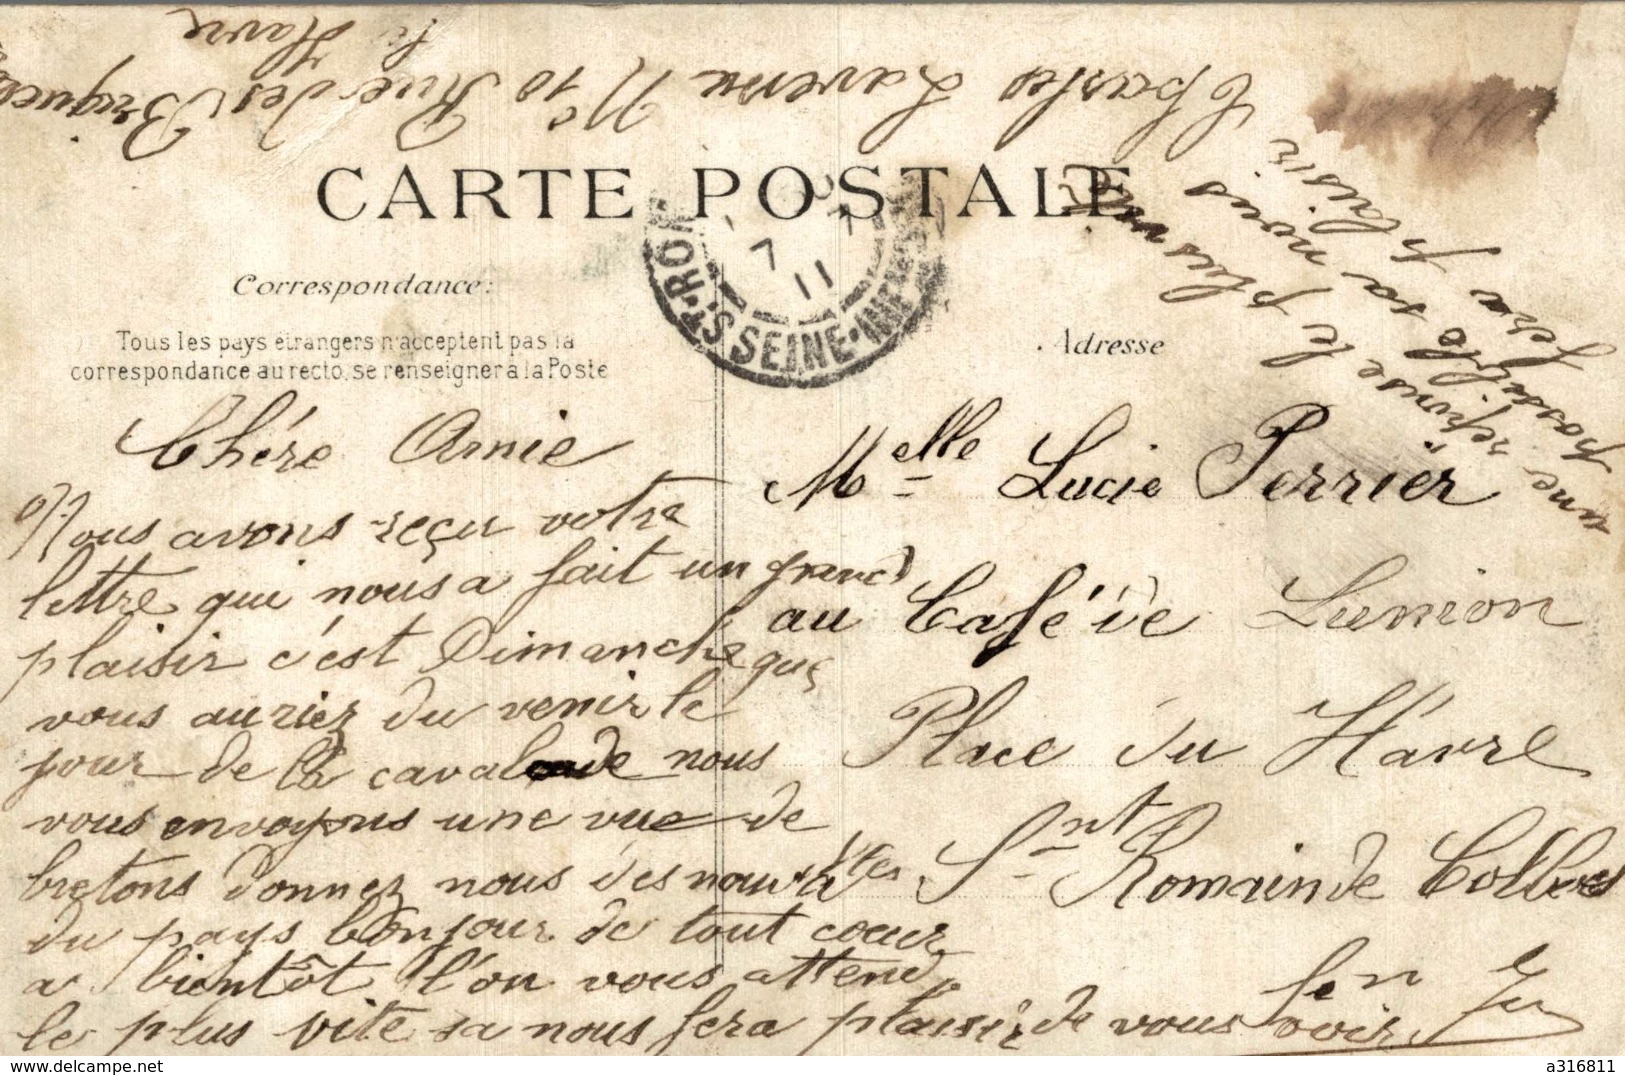 Charles Lavenu N° 10 Rue des Briques
Le Havre
CARTE POSTALE
ST-ROM
SEINE-INF
7
11
Correspondance:
Tous les pays étrangers n'acceptent pas la
correspondance au recto, se renseigner à la Poste
Adresse
une réponse le plus vite
possible sa nous
fera plaisir
Chére Amie
Nous avons reçu votre
lettre qui nous a fait un grand
plaisir c'est Dimanche que
vous auriez du venir le
jour de la cavalcade nous
vous envoyons une vue de
bretons donnez nous des nouvelles
du pays bonjour de tout coeur
a bientôt l'on vous attend
le plus vite sa nous fera plaisir de vous voir
Melle Lucie Perrier
au Café de Lunion
Place du Hâvre
Snt Romain de Colbos
a316811